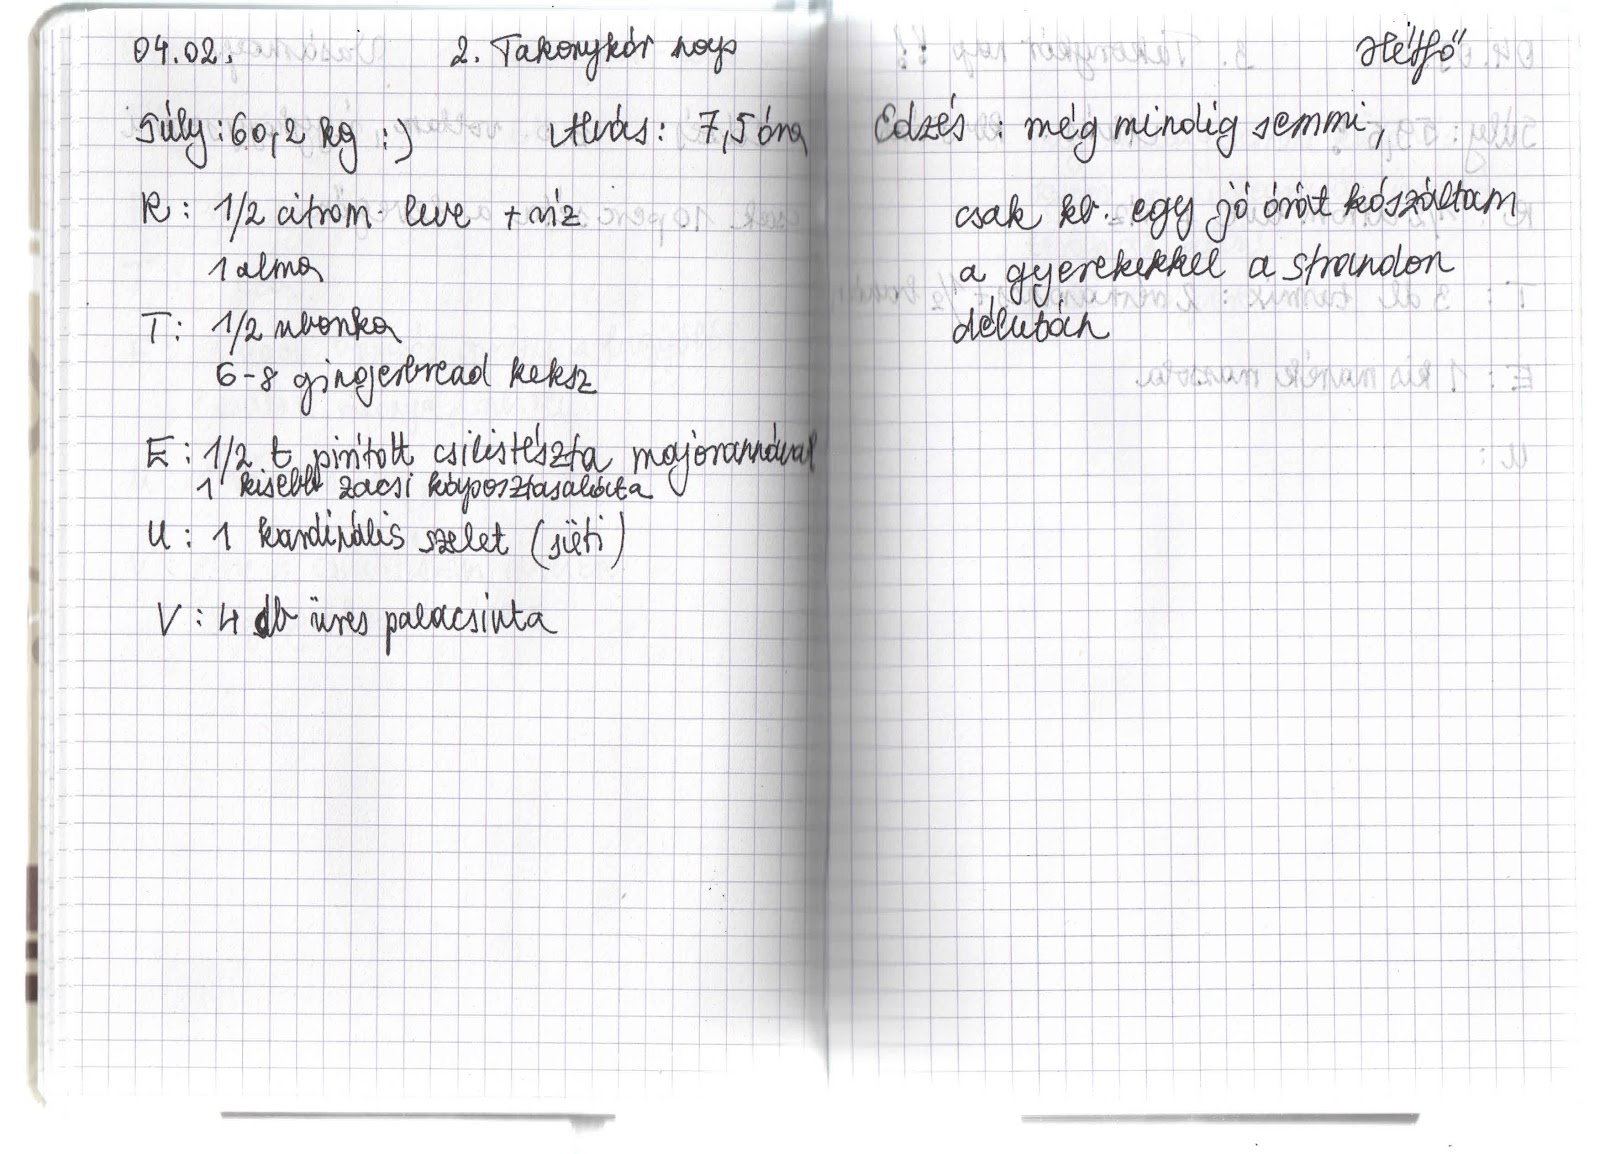 04.02. 2. Takonykór nap
Súly: 60,2 kg :) Alvás: 7,5 óra
R: 1/2 citrom leve + víz
1 alma
T: 1/2 uborka
6-8 gingerbread keksz
E: 1/2 t pirított csilistészta majorannával
1 kisebb zacsi káposztasaláta
U: 1 kardinális szelet (süti)
V: 4 db üres palacsinta
Hétfő
Edzés: még mindig semmi,
csak kb. egy jó órát kószáltam
a gyerekekkel a strandon
délután